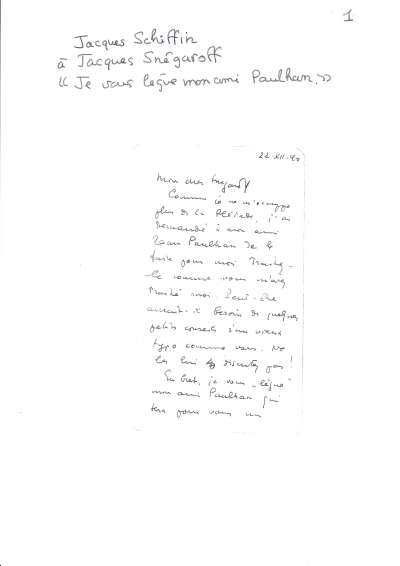 1
Jacques Schiffin
à Jacques Snégaroff
« Je vous lègue mon ami Paulhan. »
22-XII-40
Mon cher Snégaroff
Comme je ne m'occupe
plus de la Pléiade, j'ai
demandé à mon ami
Jean Paulhan de le
faire pour moi. Traitez-
le comme vous m'avez
traité moi. Peut-être
aurait-il besoin de quelques
petits conseils d'un vieux
typo comme vous. Ne
les lui discutez pas !
En bref, je vous "lègue"
mon ami Paulhan qui
sera pour vous un